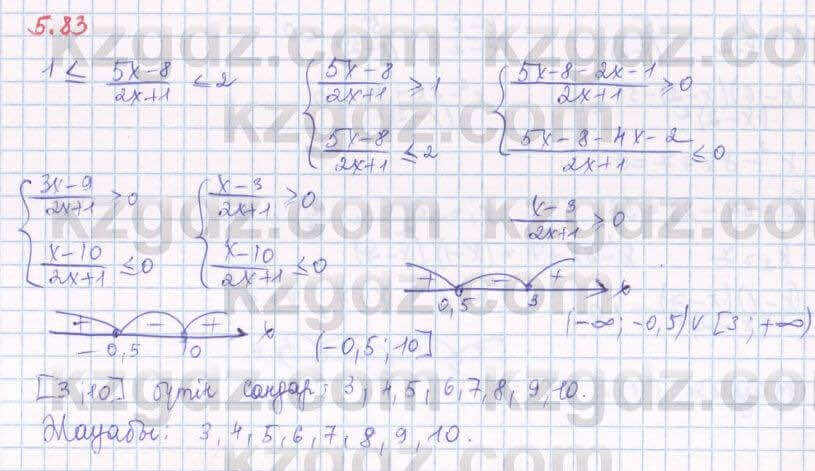 5.83
1 ≤ (5x-8)/(2x+1) ≤ 2   { (5x-8)/(2x+1) ≥ 1   { (5x-8-2x-1)/(2x+1) ≥ 0
{ (5x-8)/(2x+1) ≤ 2   { (5x-8-4x-2)/(2x+1) ≤ 0
{ (3x-9)/(2x+1) ≥ 0   { (x-3)/(2x+1) ≥ 0   (x-3)/(2x+1) ≥ 0
{ (x-10)/(2x+1) ≤ 0   { (x-10)/(2x+1) ≤ 0
+ - + x
0,5 3
(-∞; -0,5) ∨ [3; +∞)
+ - + x
-0,5 10   (-0,5; 10]
[3; 10] бүтін сандар: 3, 4, 5, 6, 7, 8, 9, 10.
Жауабы: 3, 4, 5, 6, 7, 8, 9, 10.
kzgdz.com
kzgdz.com
kzgdz.com
kzgdz.com
kzgdz.com